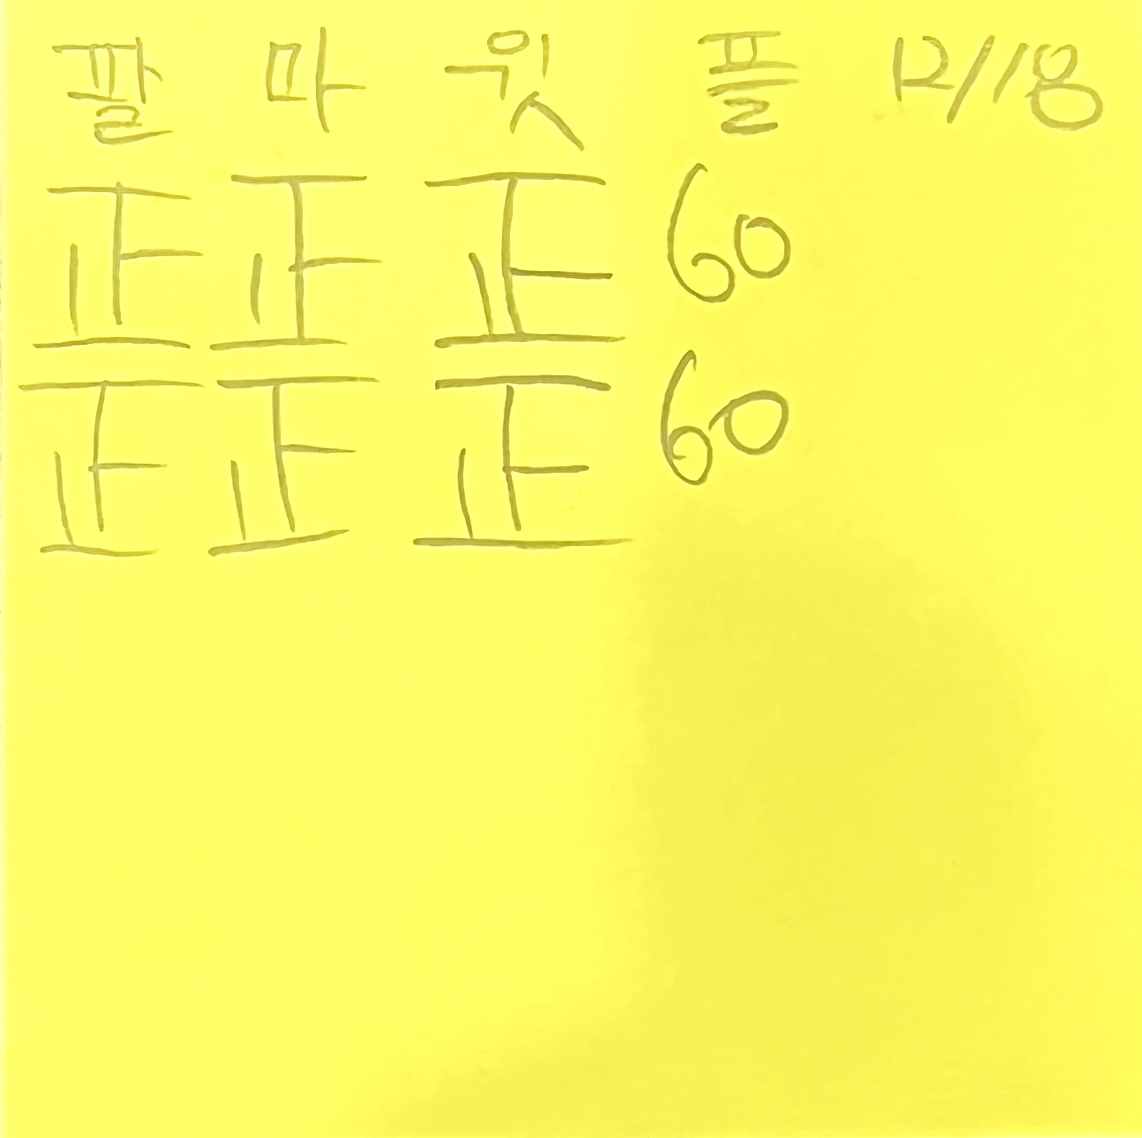 팔 마 윗 플 12/18
正 正 正 60
正 正 正 60